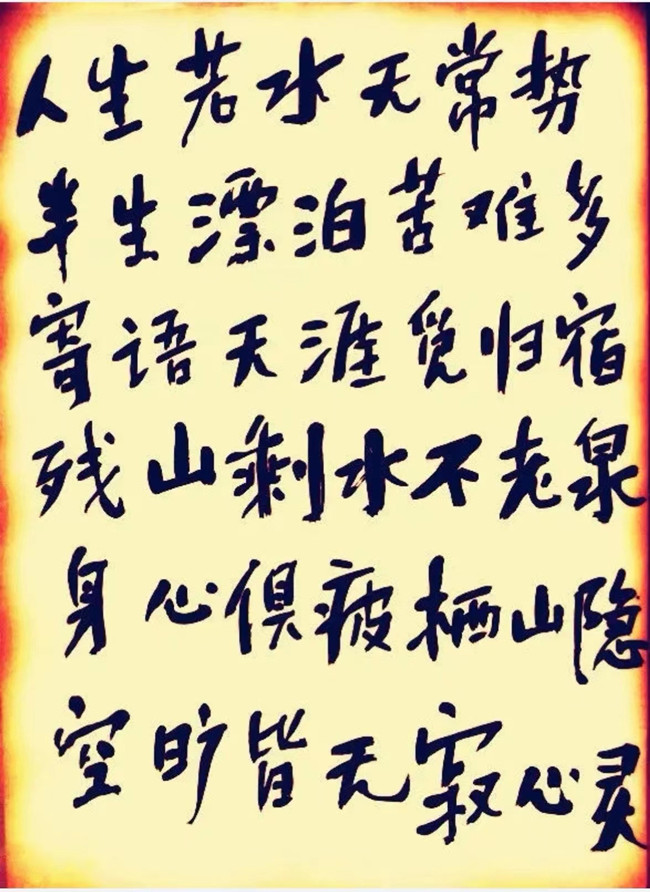 人生若水无常势
半生漂泊苦难多
寄语天涯觅归宿
残山剩水不老泉
身心俱疲栖山隐
空旷皆无寂心灵